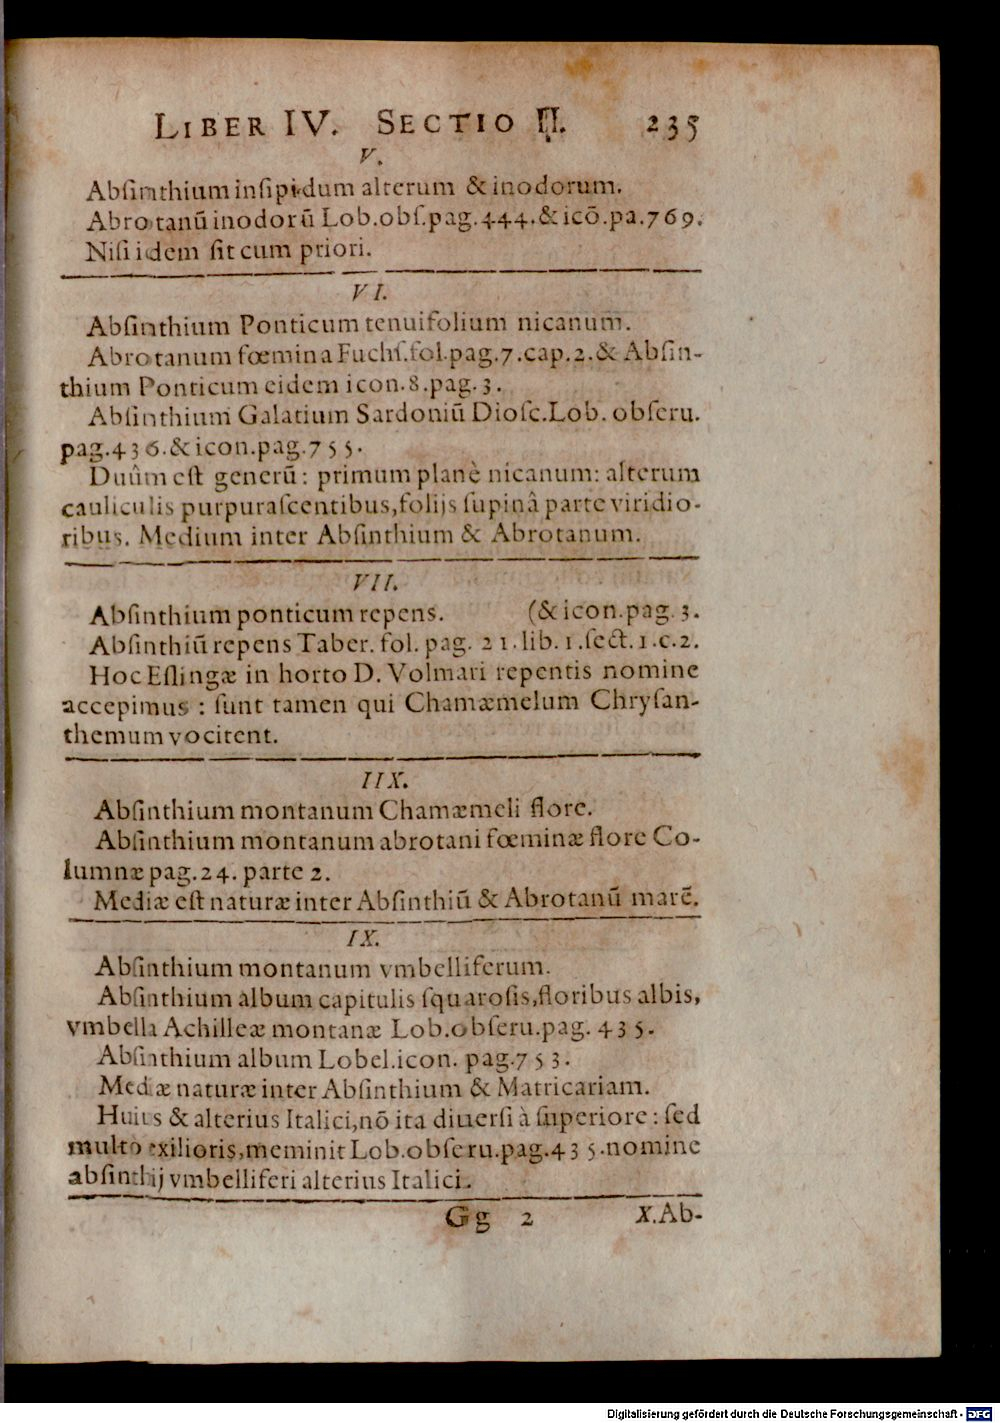 LIBER IV. SECTIO II. 235
V.
Abſinthium inſipidum alterum & inodorum.
Abrotanū inodorū Lob.obſ.pag.444.& icō.pa.769.
Niſi idem ſit cum priori.
VI.
Abſinthium Ponticum tenuifolium nicanum.
Abrotanum fœmina Fuchſ.fol.pag.7.cap.2.& Abſin-
thium Ponticum eidem icon.8.pag.3.
Abſinthium Galatium Sardoniū Dioſc.Lob. obſeru.
pag.436.& icon.pag.755.
Duûm eſt generū: primum planè nicanum: alterum
cauliculis purpuraſcentibus,folijs ſupinâ parte viridio-
ribus. Medium inter Abſinthium & Abrotanum.
VII.
Abſinthium ponticum repens. (& icon.pag.3.
Abſinthiū repens Taber. fol. pag. 21.lib.1.ſect.1.c.2.
Hoc Eſlingæ in horto D. Volmari repentis nomine
accepimus : ſunt tamen qui Chamæmelum Chryſan-
themum vocitent.
IIX.
Abſinthium montanum Chamæmeli flore.
Abſinthium montanum abrotani fœminæ flore Co-
lumnæ pag.24. parte 2.
Mediæ eſt naturæ inter Abſinthiū & Abrotanū marē.
IX.
Abſinthium montanum vmbelliferum.
Abſinthium album capitulis ſquaroſis,floribus albis,
vmbella Achilleæ montanæ Lob.obſeru.pag. 435.
Abſinthium album Lobel.icon. pag.753.
Mediæ naturæ inter Abſinthium & Matricariam.
Huius & alterius Italici,nō ita diuerſi à ſuperiore : ſed
multo exilioris,meminit Lob.obſeru.pag.435.nomine
abſinthij vmbelliferi alterius Italici.
Gg 2 X.Ab-
Digitalisierung gefördert durch die Deutsche Forschungsgemeinschaft - DFG